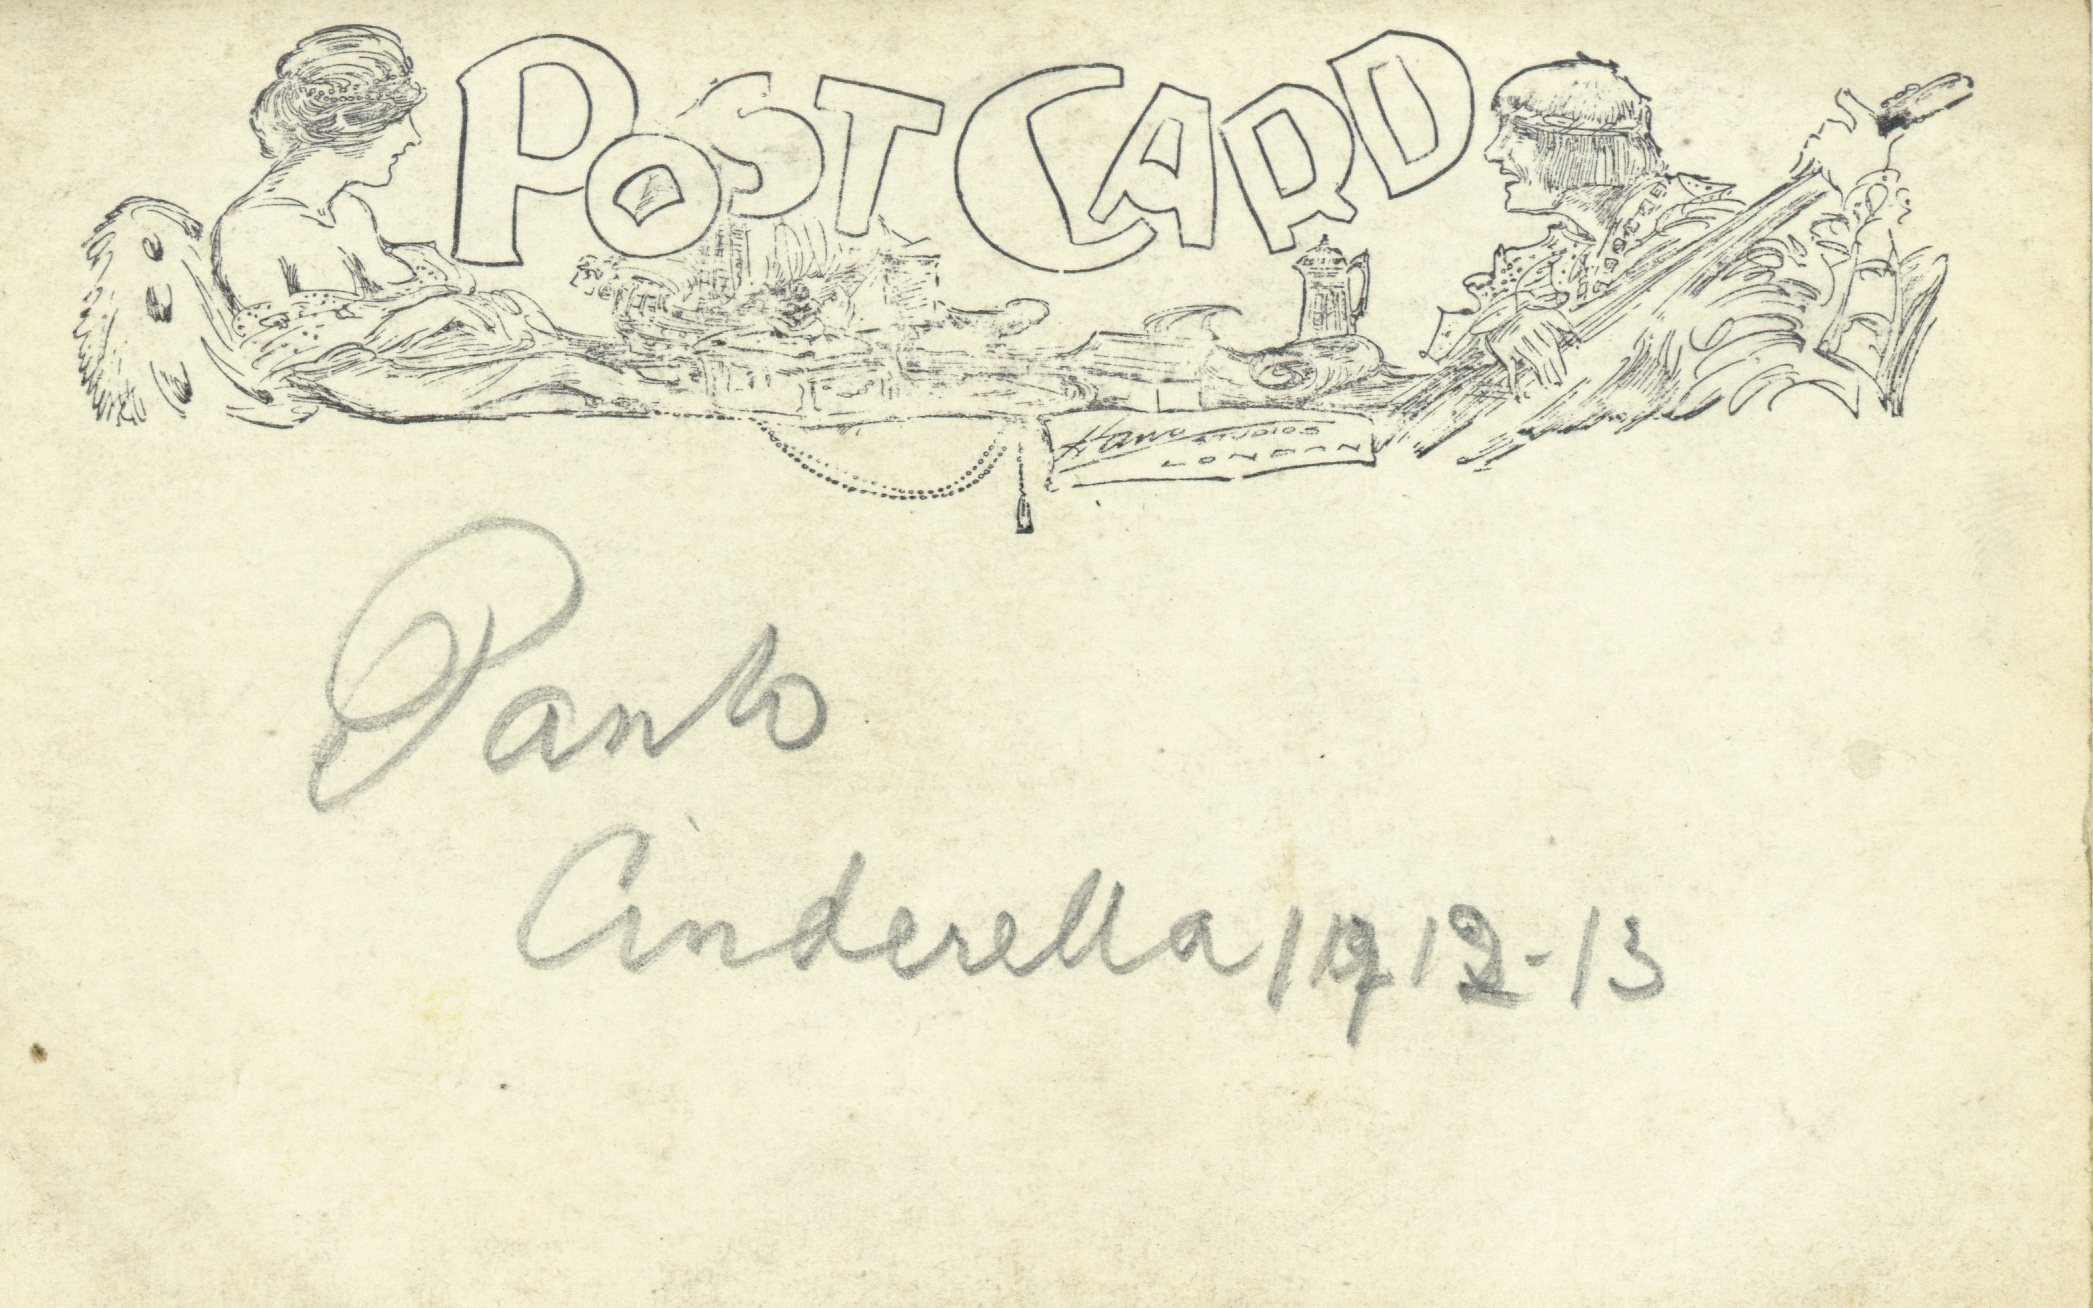 POST CARD
Hana STUDIOS
LONDON
Panto
Cinderella 1912-13